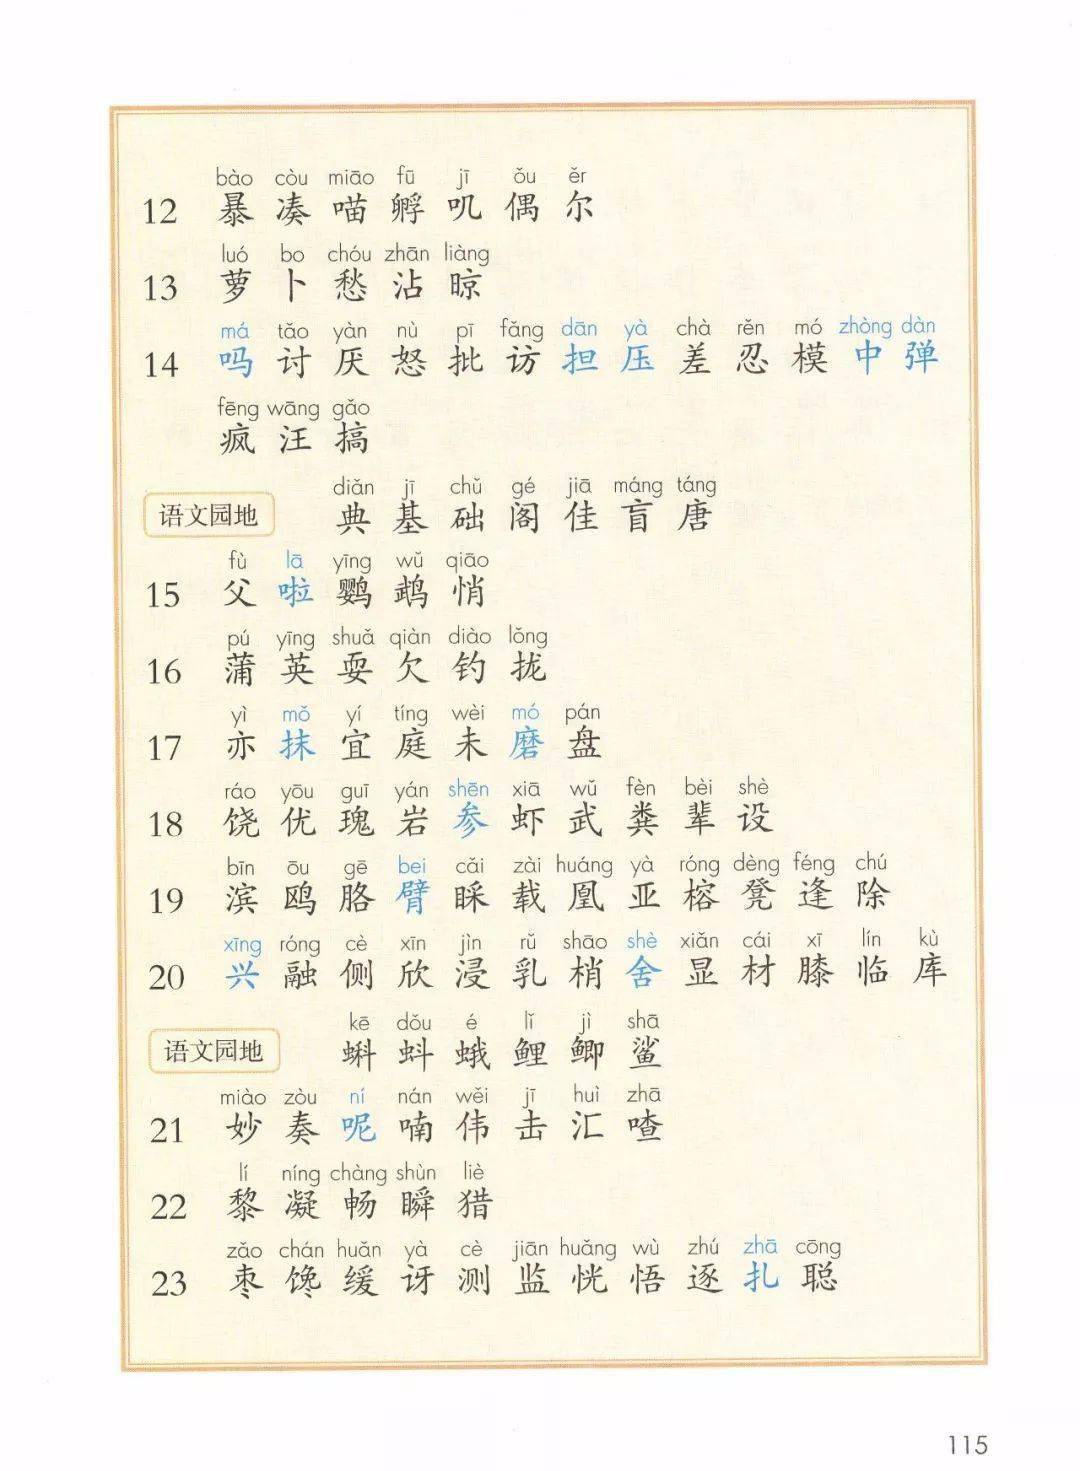 bào còu miāo fū jī ǒu ěr
12 暴 凑 喵 孵 叽 偶 尔
luó bo chóu zhān liàng
13 萝 卜 愁 沾 晾
má tǎo yàn nù pī fǎng dān yà chà rěn mó zhòng dàn
14 吗 讨 厌 怒 批 访 担 压 差 忍 模 中 弹
fēng wāng gǎo
疯 汪 搞
diǎn jī chǔ gé jiā máng táng
语文园地 典 基 础 阁 佳 盲 唐
fù lā yīng wǔ qiāo
15 父 啦 鹦 鹉 悄
pú yīng shuǎ qiàn diào lǒng
16 蒲 英 耍 欠 钓 拢
yì mǒ yí tíng wèi mó pán
17 亦 抹 宜 庭 未 磨 盘
ráo yōu guī yán shēn xiā wǔ fèn bèi shè
18 饶 优 瑰 岩 参 虾 武 粪 辈 设
bīn ōu gē bei cǎi zài huáng yà róng dèng féng chú
19 滨 鸥 胳 臂 睬 载 凰 亚 榕 凳 逢 除
xīng róng cè xīn jìn rǔ shāo shè xiǎn cái xī lín kù
20 兴 融 侧 欣 浸 乳 梢 舍 显 材 膝 临 库
kē dǒu é lǐ jì shā
语文园地 蝌 蚪 蛾 鲤 鲫 鲨
miào zòu ní nán wěi jī huì zhā
21 妙 奏 呢 喃 伟 击 汇 喳
lí níng chàng shùn liè
22 黎 凝 畅 瞬 猎
zǎo chán huǎn yà cè jiān huǎng wù zhú zhā cōng
23 枣 馋 缓 讶 测 监 恍 悟 逐 扎 聪
115